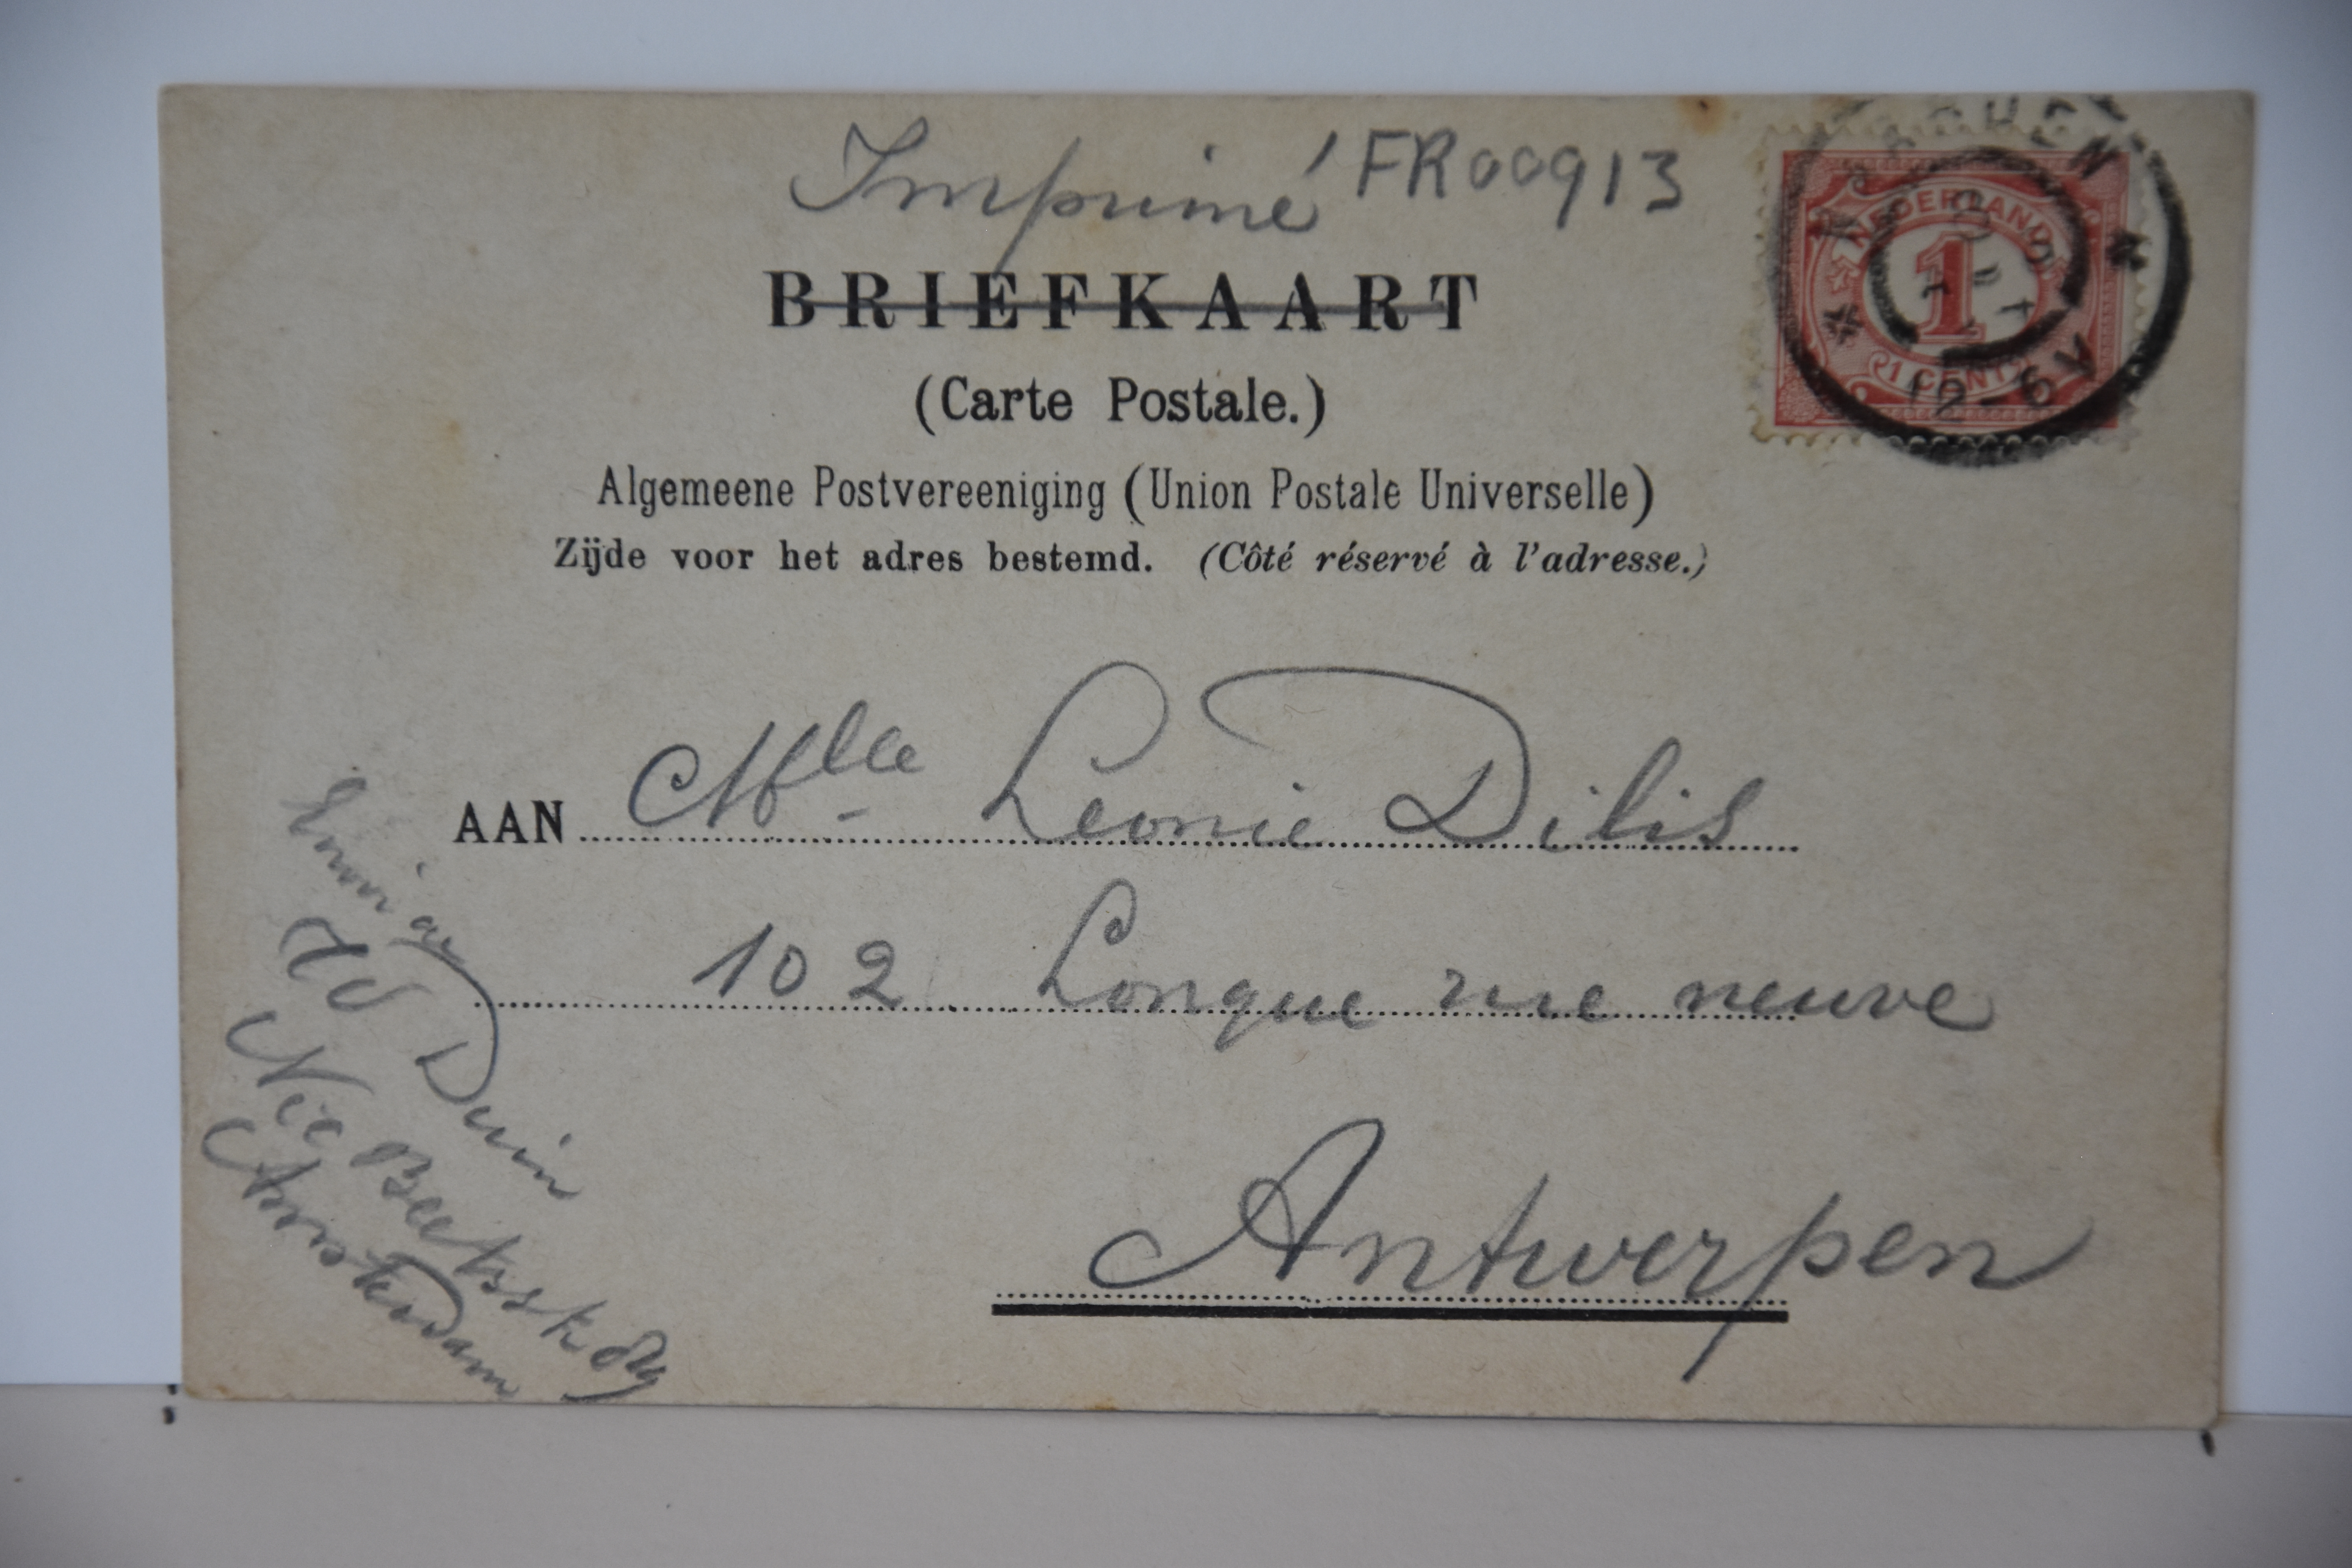 Imprimé FR00913
BRIEFKAART
(Carte Postale.)
Algemeene Postvereeniging (Union Postale Universelle)
Zijde voor het adres bestemd. (Côté réservé à l'adresse.)
NEDERLAND
1
1 CENT
12-6V
N
AAN Mlle Leonie Dilis
102 Longue rue neuve
Antwerpen
Duin
Amsterdam